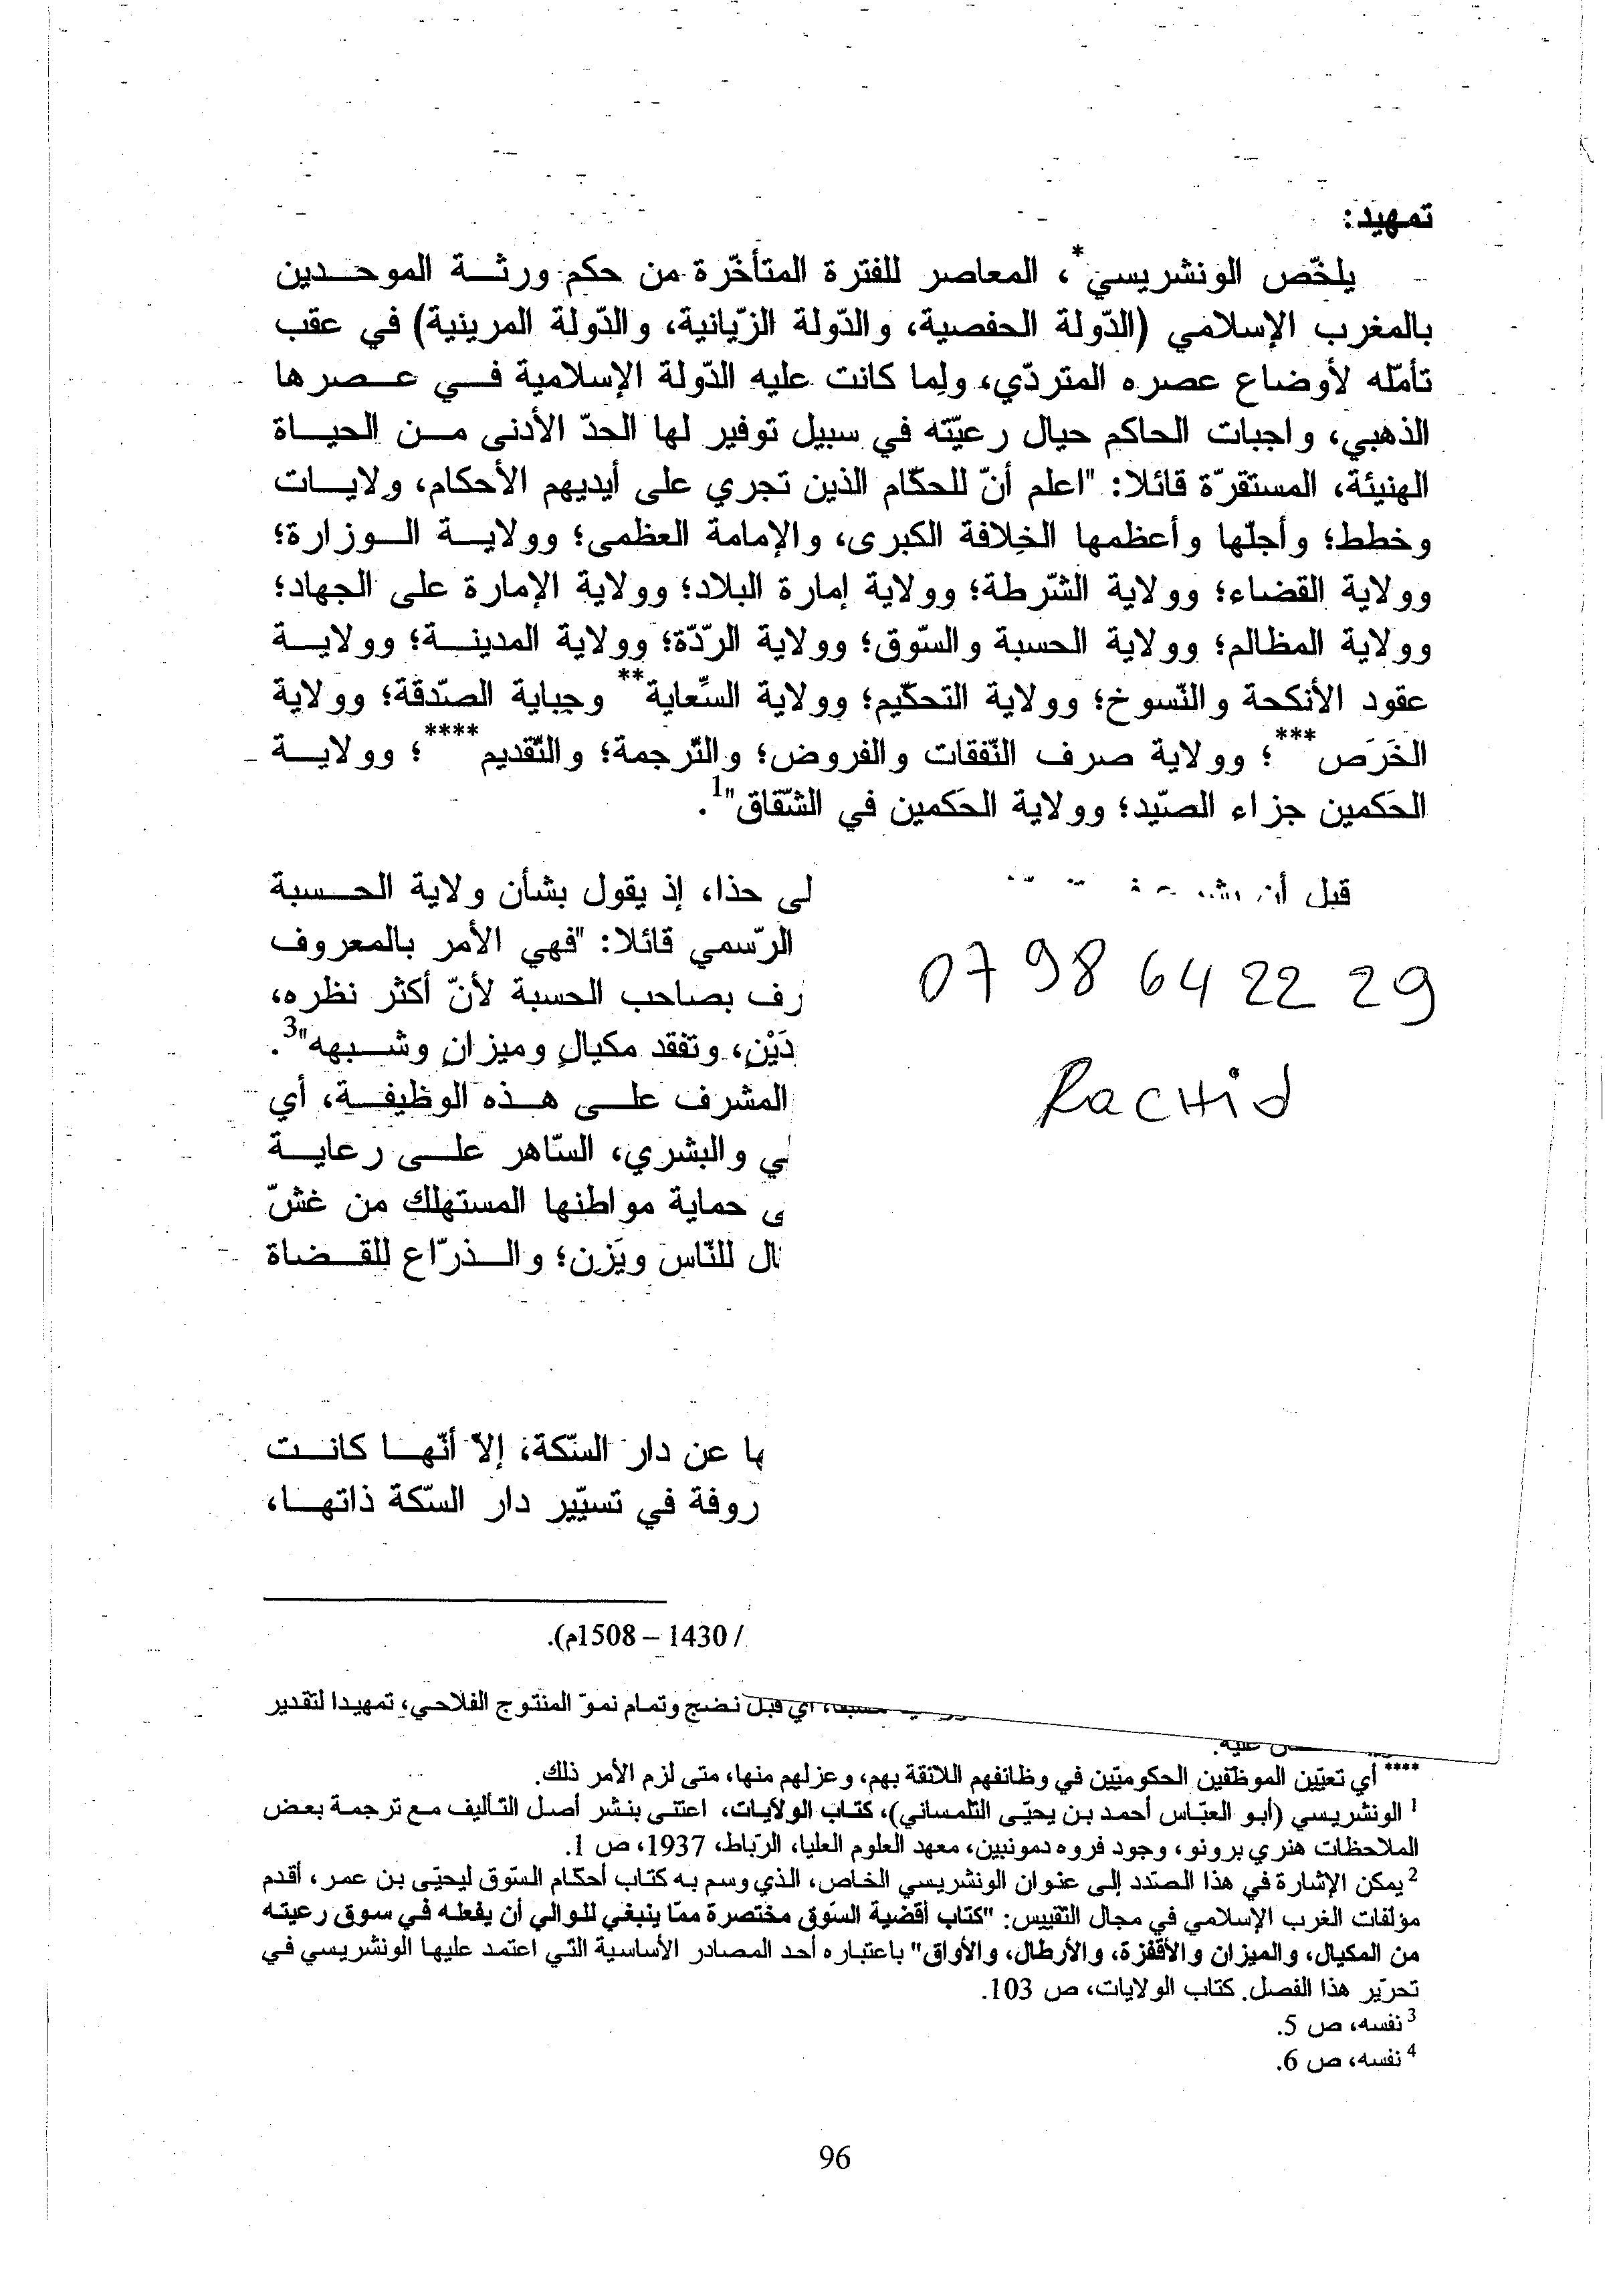 تمهيد:
يلخّص الونشريسي*، المعاصر للفترة المتأخّرة من حكم ورثة الموحدين
بالمغرب الإسلامي (الدّولة الحفصية، والدّولة الزّيانية، والدّولة المرينية) في عقب
تأمّله لأوضاع عصره المتردّي، ولِما كانت عليه الدّولة الإسلامية في عصرها
الذهبي، واجبات الحاكم حيال رعيّته في سبيل توفير لها الحدّ الأدنى من الحياة
الهنيئة، المستقرّة قائلا: "اعلم أنّ للحكّام الذين تجري على أيديهم الأحكام، ولايات
وخطط؛ وأجلّها وأعظمها الخِلافة الكبرى، والإمامة العظمى؛ وولاية الوزارة؛
وولاية القضاء؛ وولاية الشّرطة؛ وولاية إمارة البلاد؛ وولاية الإمارة على الجهاد؛
وولاية المظالم؛ وولاية الحسبة والسّوق؛ وولاية الردّة؛ وولاية المدينة؛ وولاية
عقود الأنكحة والنّسوخ؛ وولاية التحكّيم؛ وولاية السِّعاية** وجباية الصّدقة؛ وولاية
الخَرَص***؛ وولاية صرف النّفقات والفروض؛ والتّرجمة؛ والتّقديم****؛ وولاية
الحَكمين جزاء الصّيد؛ وولاية الحَكمين في الشّقاق"1.
قبل أن لى حذا، إذ يقول بشأن ولاية الحسبة
الرّسمي قائلا: "فهي الأمر بالمعروف
رف بصاحب الحسبة لأنّ أكثر نظره،
07 98 64 22 29
دَيْنٍ، وتفقد مكيالٍ وميزانٍ وشبهه"3.
المشرف على هذه الوظيفة، أي
Rachid
ي والبشري، السّاهر على رعاية
ى حماية مواطنها المستهلك من غشّ
ال للنّاس ويَزن؛ والذرّاع للقضاة
ها عن دار السّكة، إلاّ أنّها كانت
روفة في تسيّير دار السّكة ذاتها،
/ 1430 – 1508م).
أي قبل نضج وتمام نموّ المنتوج الفلاحي، تمهيدا لتقدير
عليه.
**** أي تعيّين الموظفين الحكوميّين في وظائفهم اللائقة بهم، وعزلهم منها، متى لزم الأمر ذلك.
1 الونشريسي (أبو العبّاس أحمد بن يحيّى التّلمساني)، كتاب الولايات، اعتنى بنشر أصل التأليف مع ترجمة بعض
الملاحظات هنري برونو، وجود فروه دمونبين، معهد العلوم العليا، الرّباط، 1937، ص 1.
2 يمكن الإشارة في هذا الصّدد إلى عنوان الونشريسي الخاص، الذي وسم به كتاب أحكام السّوق ليحيّى بن عمر، أقدم
مؤلفات الغرب الإسلامي في مجال التقييس: "كتاب أقضية السّوق مختصرة ممّا ينبغي للوالي أن يفعله في سوق رعيته
من المكيال، والميزان والأقفزة، والأرطال، والأواق" باعتباره أحد المصادر الأساسية التي اعتمد عليها الونشريسي في
تحرّير هذا الفصل. كتاب الولايات، ص 103.
3 نفسه، ص 5.
4 نفسه، ص 6.
96